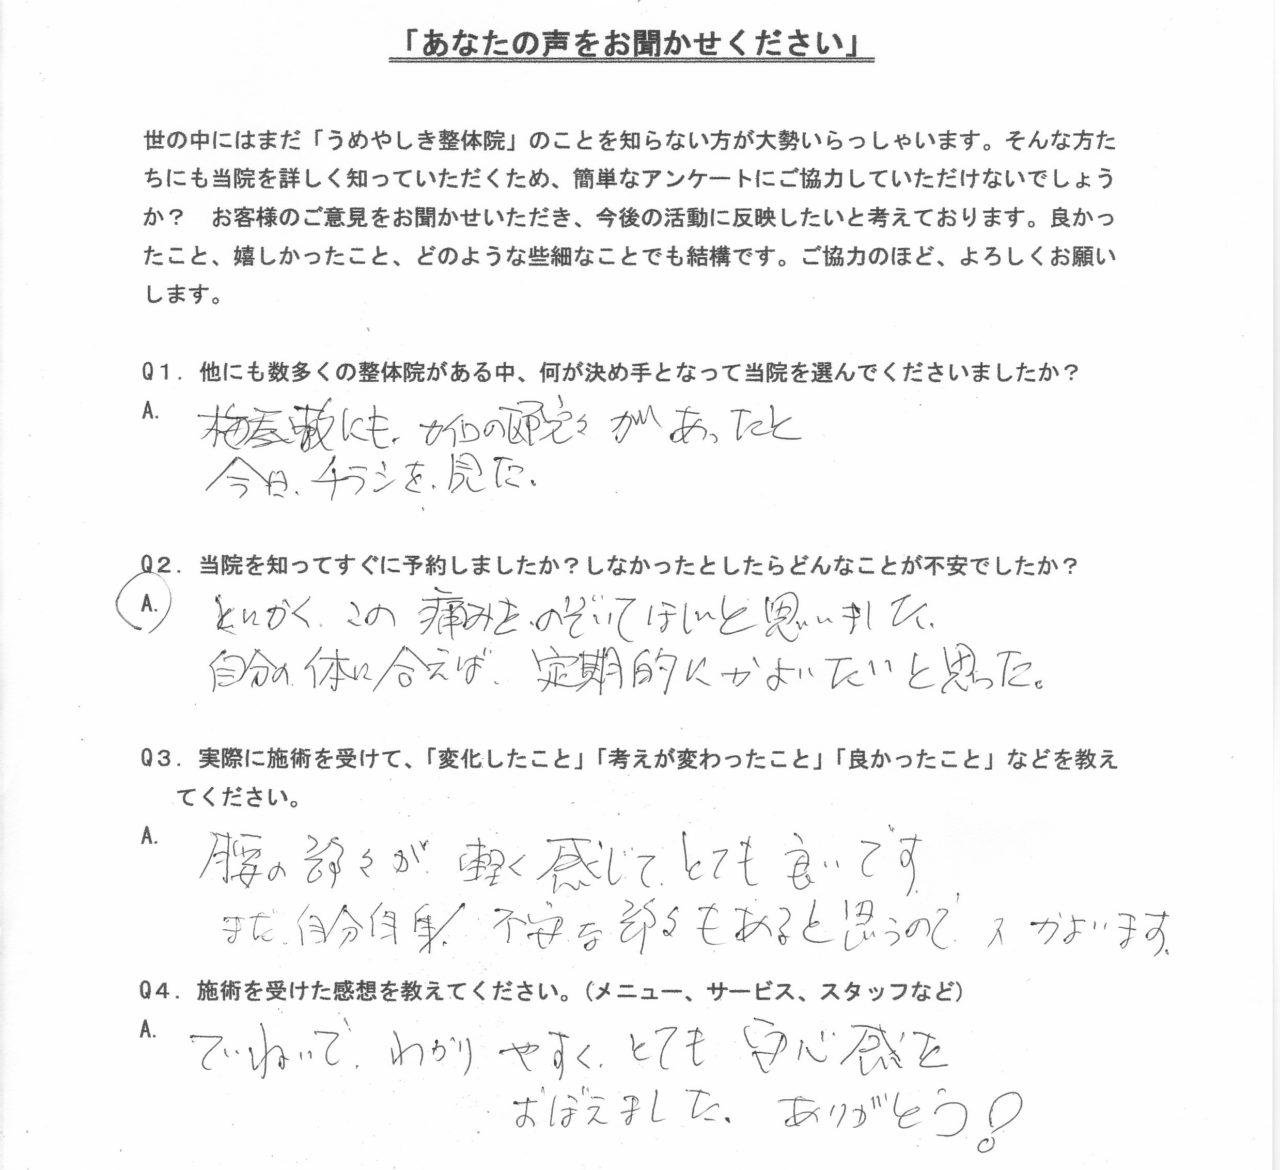 「あなたの声をお聞かせください」
世の中にはまだ「うめやしき整体院」のことを知らない方が大勢いらっしゃいます。そんな方た
ちにも当院を詳しく知っていただくため、簡単なアンケートにご協力していただけないでしょう
か？　お客様のご意見をお聞かせいただき、今後の活動に反映したいと考えております。良かっ
たこと、嬉しかったこと、どのような些細なことでも結構です。ご協力のほど、よろしくお願い
します。
Q1．他にも数多くの整体院がある中、何が決め手となって当院を選んでくださいましたか？
A. 梅屋敷にも、カイロの があったと
今日、チラシを、見た。
Q2．当院を知ってすぐに予約しましたか？しなかったとしたらどんなことが不安でしたか？
A. とにかく、この痛みを、のぞいてほしいと思いました、
自分の体に合えば、定期的にかよいたいと思った。
Q3．実際に施術を受けて、「変化したこと」「考えが変わったこと」「良かったこと」などを教え
てください。
A. 腰の部分が軽く感じて、とても良いです
まだ、自分自身、不安な部分もあると思うので、又かよいます。
Q4．施術を受けた感想を教えてください。（メニュー、サービス、スタッフなど）
A. ていねいで、わかりやすく、とても安心感を
おぼえました、ありがとう！